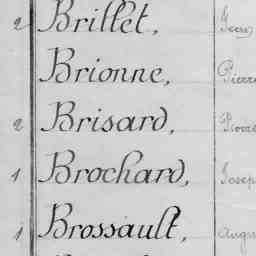 2 Brillet, Jean
Brionne, Pierre
2 Brisard, Pierre
1 Brochard, Joseph
1 Brossault, Augu